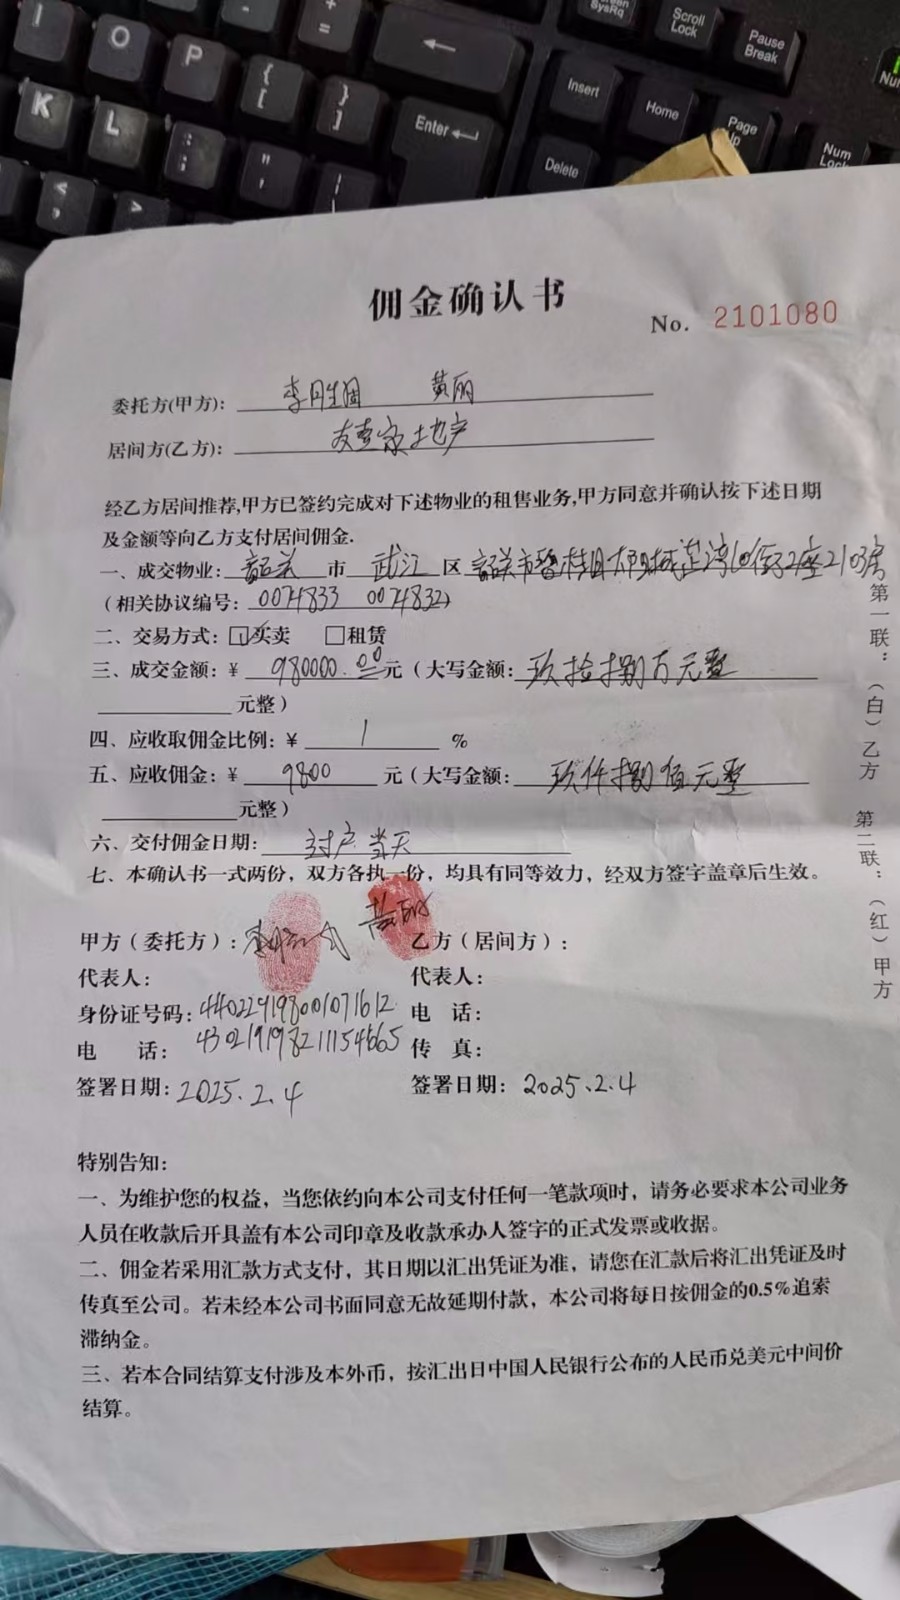 I
O
P
{
[
}
]
+
=
-
←
K
L
:
;
"
'
|
<
,
>
.
Enter
SysRq
Scroll
Lock
Pause
Break
Insert
Home
Page
Up
Delete
Num
Lock
佣金确认书
No. 2101080
委托方(甲方): 黄丽
居间方(乙方): 家土地产
经乙方居间推荐,甲方已签约完成对下述物业的租售业务,甲方同意并确认按下述日期
及金额等向乙方支付居间佣金.
一、成交物业: 韶关 市 武江 区 韶关市碧桂园 湾 街 2座2103房
(相关协议编号: 0074833 0074832)
二、交易方式: ☑买卖 □租赁
三、成交金额: ¥ 980000.00 元(大写金额: 玖拾捌万元整
元整)
四、应收取佣金比例: ¥ 1 %
五、应收佣金: ¥ 9800 元(大写金额: 玖仟捌佰元整
元整)
六、交付佣金日期: 过户当天
七、本确认书一式两份,双方各执一份,均具有同等效力,经双方签字盖章后生效。
甲方(委托方): 黄丽 乙方(居间方):
代表人: 代表人:
身份证号码: 440229198001071612 电 话:
电 话: 430219198211154665 传 真:
签署日期: 2025.2.4 签署日期: 2025.2.4
第一联:(白)乙方 第二联:(红)甲方
特别告知:
一、为维护您的权益,当您依约向本公司支付任何一笔款项时,请务必要求本公司业务
人员在收款后开具盖有本公司印章及收款承办人签字的正式发票或收据。
二、佣金若采用汇款方式支付,其日期以汇出凭证为准,请您在汇款后将汇出凭证及时
传真至公司。若未经本公司书面同意无故延期付款,本公司将每日按佣金的0.5%追索
滞纳金。
三、若本合同结算支付涉及本外币,按汇出日中国人民银行公布的人民币兑美元中间价
结算。